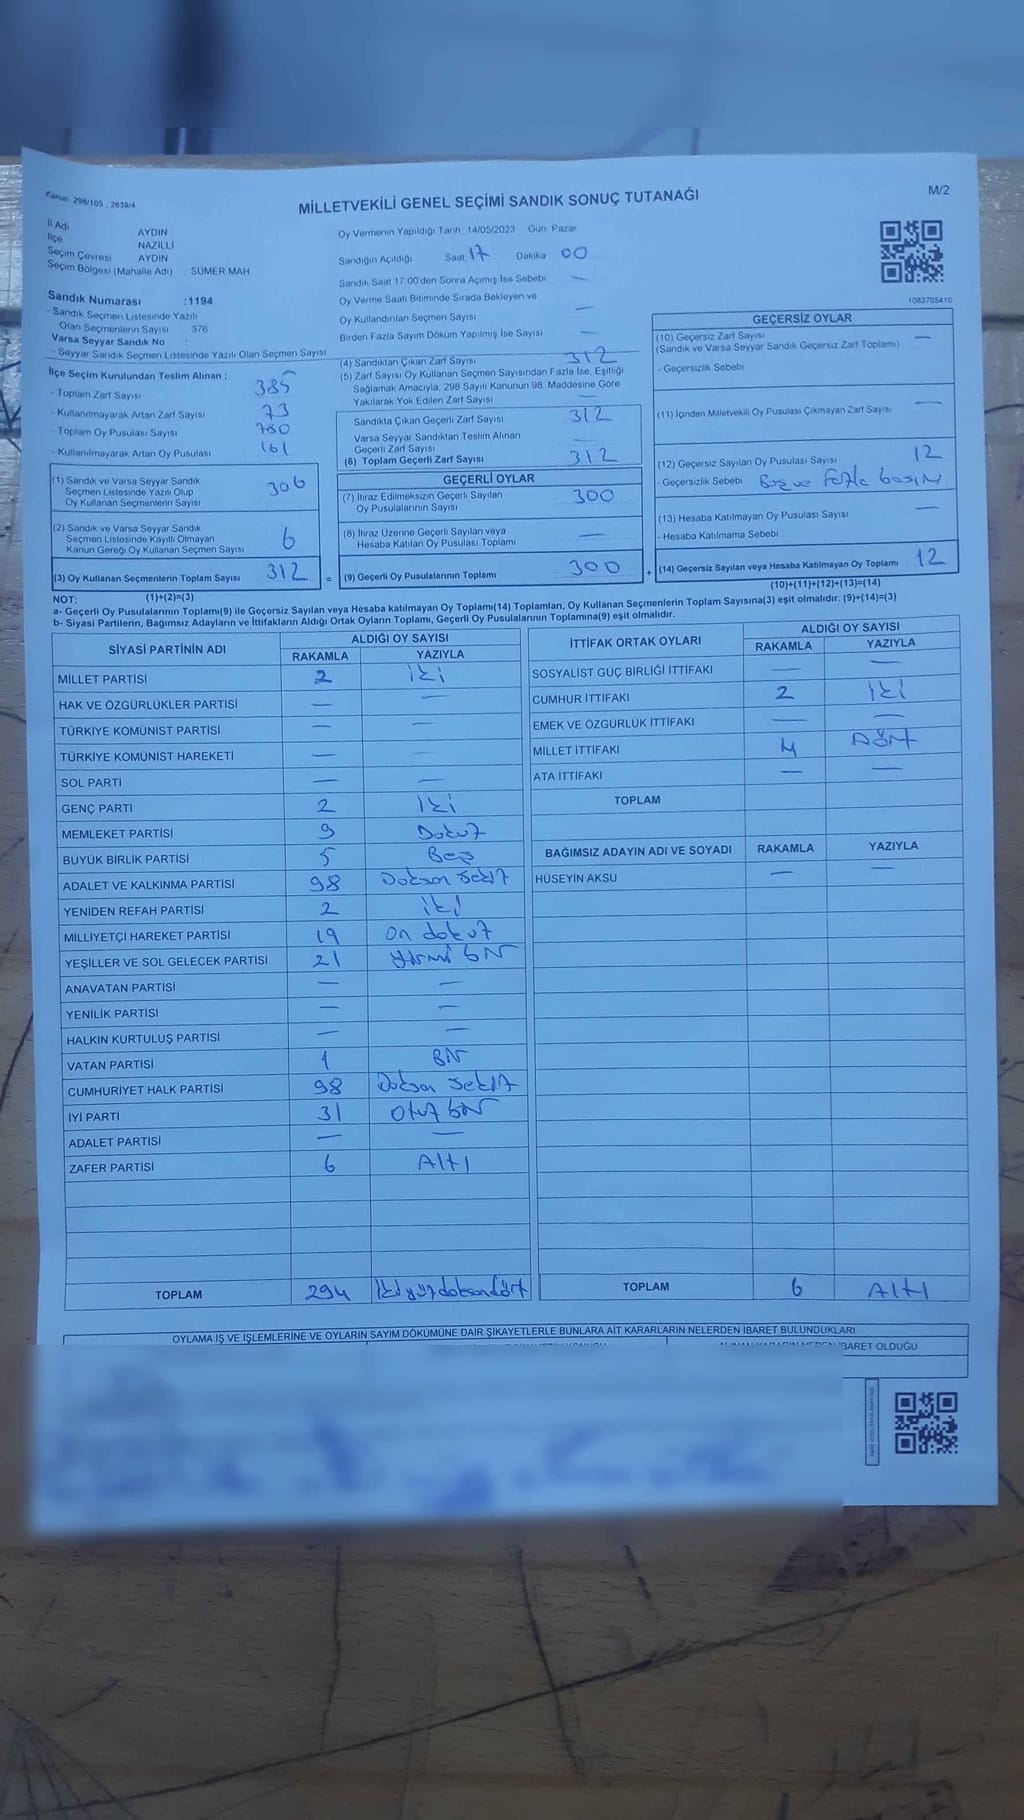 Kanun 298/105 . 2839/4
MİLLETVEKİLİ GENEL SEÇİMİ SANDIK SONUÇ TUTANAĞI
M/2
İl Adı AYDIN
İlçe NAZİLLİ
Seçim Çevresi AYDIN
Seçim Bölgesi (Mahalle Adı) SÜMER MAH.
Sandık Numarası :1194
- Sandık Seçmen Listesinde Yazılı
Olan Seçmenlerin Sayısı 376
Varsa Seyyar Sandık No :
- Seyyar Sandık Seçmen Listesinde Yazılı Olan Seçmen Sayısı
İlçe Seçim Kurulundan Teslim Alınan :
- Toplam Zarf Sayısı 385
- Kullanılmayarak Artan Zarf Sayısı 73
- Toplam Oy Pusulası Sayısı
- Kullanılmayarak Artan Oy Pusulası 161
(1) Sandık ve Varsa Seyyar Sandık
Seçmen Listesinde Yazılı Olup
Oy Kullanan Seçmenlerin Sayısı 306
(2) Sandık ve Varsa Seyyar Sandık
Seçmen Listesinde Kayıtlı Olmayan
Kanun Gereği Oy Kullanan Seçmen Sayısı 6
(3) Oy Kullanan Seçmenlerin Toplam Sayısı 312 =
Oy Vermenin Yapıldığı Tarih 14/05/2023 Gün Pazar
Sandığın Açıldığı Saat 17 Dakika 00
Sandık Saat 17.00'den Sonra Açımış İse Sebebi —
Oy Verme Saati Bitiminde Sırada Bekleyen ve
Oy Kullandırılan Seçmen Sayısı —
Birden Fazla Sayım Döküm Yapılmış İse Sayısı —
(4) Sandıktan Çıkan Zarf Sayısı 312
(5) Zarf Sayısı Oy Kullanan Seçmen Sayısından Fazla İse, Eşitliği
Sağlamak Amacıyla, 298 Sayılı Kanunun 98. Maddesine Göre
Yakılarak Yok Edilen Zarf Sayısı —
Sandıkta Çıkan Geçerli Zarf Sayısı 312
Varsa Seyyar Sandıktan Teslim Alınan
Geçerli Zarf Sayısı —
(6) Toplam Geçerli Zarf Sayısı 312
GEÇERLİ OYLAR
(7) İtiraz Edilmeksizin Geçerli Sayılan
Oy Pusulalarının Sayısı 300
(8) İtiraz Üzerine Geçerli Sayılan veya
Hesaba Katılan Oy Pusulası Toplamı —
(9) Geçerli Oy Pusulalarının Toplamı 300 +
1083705410
GEÇERSİZ OYLAR
(10) Geçersiz Zarf Sayısı —
(Sandık ve Varsa Seyyar Sandık Geçersiz Zarf Toplamı)
- Geçersizlik Sebebi
(11) İçinden Milletvekili Oy Pusulası Çıkmayan Zarf Sayısı —
(12) Geçersiz Sayılan Oy Pusulası Sayısı 12
- Geçersizlik Sebebi Boş ve fazla basım
(13) Hesaba Katılmayan Oy Pusulası Sayısı —
- Hesaba Katılmama Sebebi
(14) Geçersiz Sayılan veya Hesaba Katılmayan Oy Toplamı 12
(10)+(11)+(12)+(13)=(14)
NOT: (1)+(2)=(3)
a- Geçerli Oy Pusulalarının Toplamı(9) ile Geçersiz Sayılan veya Hesaba katılmayan Oy Toplamı(14) Toplamları, Oy Kullanan Seçmenlerin Toplam Sayısına(3) eşit olmalıdır. (9)+(14)=(3)
b- Siyasi Partilerin, Bağımsız Adayların ve İttifakların Aldığı Ortak Oyların Toplamı, Geçerli Oy Pusulalarının Toplamına(9) eşit olmalıdır.
SİYASİ PARTİNİN ADI ALDIĞI OY SAYISI
RAKAMLA YAZIYLA
MİLLET PARTİSİ 2 iki
HAK VE ÖZGÜRLÜKLER PARTİSİ — —
TÜRKİYE KOMÜNİST PARTİSİ — —
TÜRKİYE KOMÜNİST HAREKETİ — —
SOL PARTİ — —
GENÇ PARTİ 2 iki
MEMLEKET PARTİSİ 9 Dokuz
BÜYÜK BİRLİK PARTİSİ 5 Beş
ADALET VE KALKINMA PARTİSİ 98 Doksan sekiz
YENİDEN REFAH PARTİSİ 2 iki
MİLLİYETÇİ HAREKET PARTİSİ 19 on dokuz
YEŞİLLER VE SOL GELECEK PARTİSİ 21 yirmi bir
ANAVATAN PARTİSİ — —
YENİLİK PARTİSİ — —
HALKIN KURTULUŞ PARTİSİ — —
VATAN PARTİSİ 1 Bir
CUMHURİYET HALK PARTİSİ 98 Doksan sekiz
İYİ PARTİ 31 Otuz bir
ADALET PARTİSİ — —
ZAFER PARTİSİ 6 Altı
TOPLAM 294 ikiyüzdoksandört
İTTİFAK ORTAK OYLARI ALDIĞI OY SAYISI
RAKAMLA YAZIYLA
SOSYALİST GÜÇ BİRLİĞİ İTTİFAKI — —
CUMHUR İTTİFAKI 2 iki
EMEK VE ÖZGÜRLÜK İTTİFAKI — —
MİLLET İTTİFAKI 4 DÖRT
ATA İTTİFAKI — —
TOPLAM
BAĞIMSIZ ADAYIN ADI VE SOYADI RAKAMLA YAZIYLA
HÜSEYİN AKSU — —
TOPLAM 6 Altı
OYLAMA İŞ VE İŞLEMLERİNE VE OYLARIN SAYIM DÖKÜMÜNE DAİR ŞİKAYETLERLE BUNLARA AİT KARARLARIN NELERDEN İBARET BULUNDUKLARI
İBARET OLDUĞU